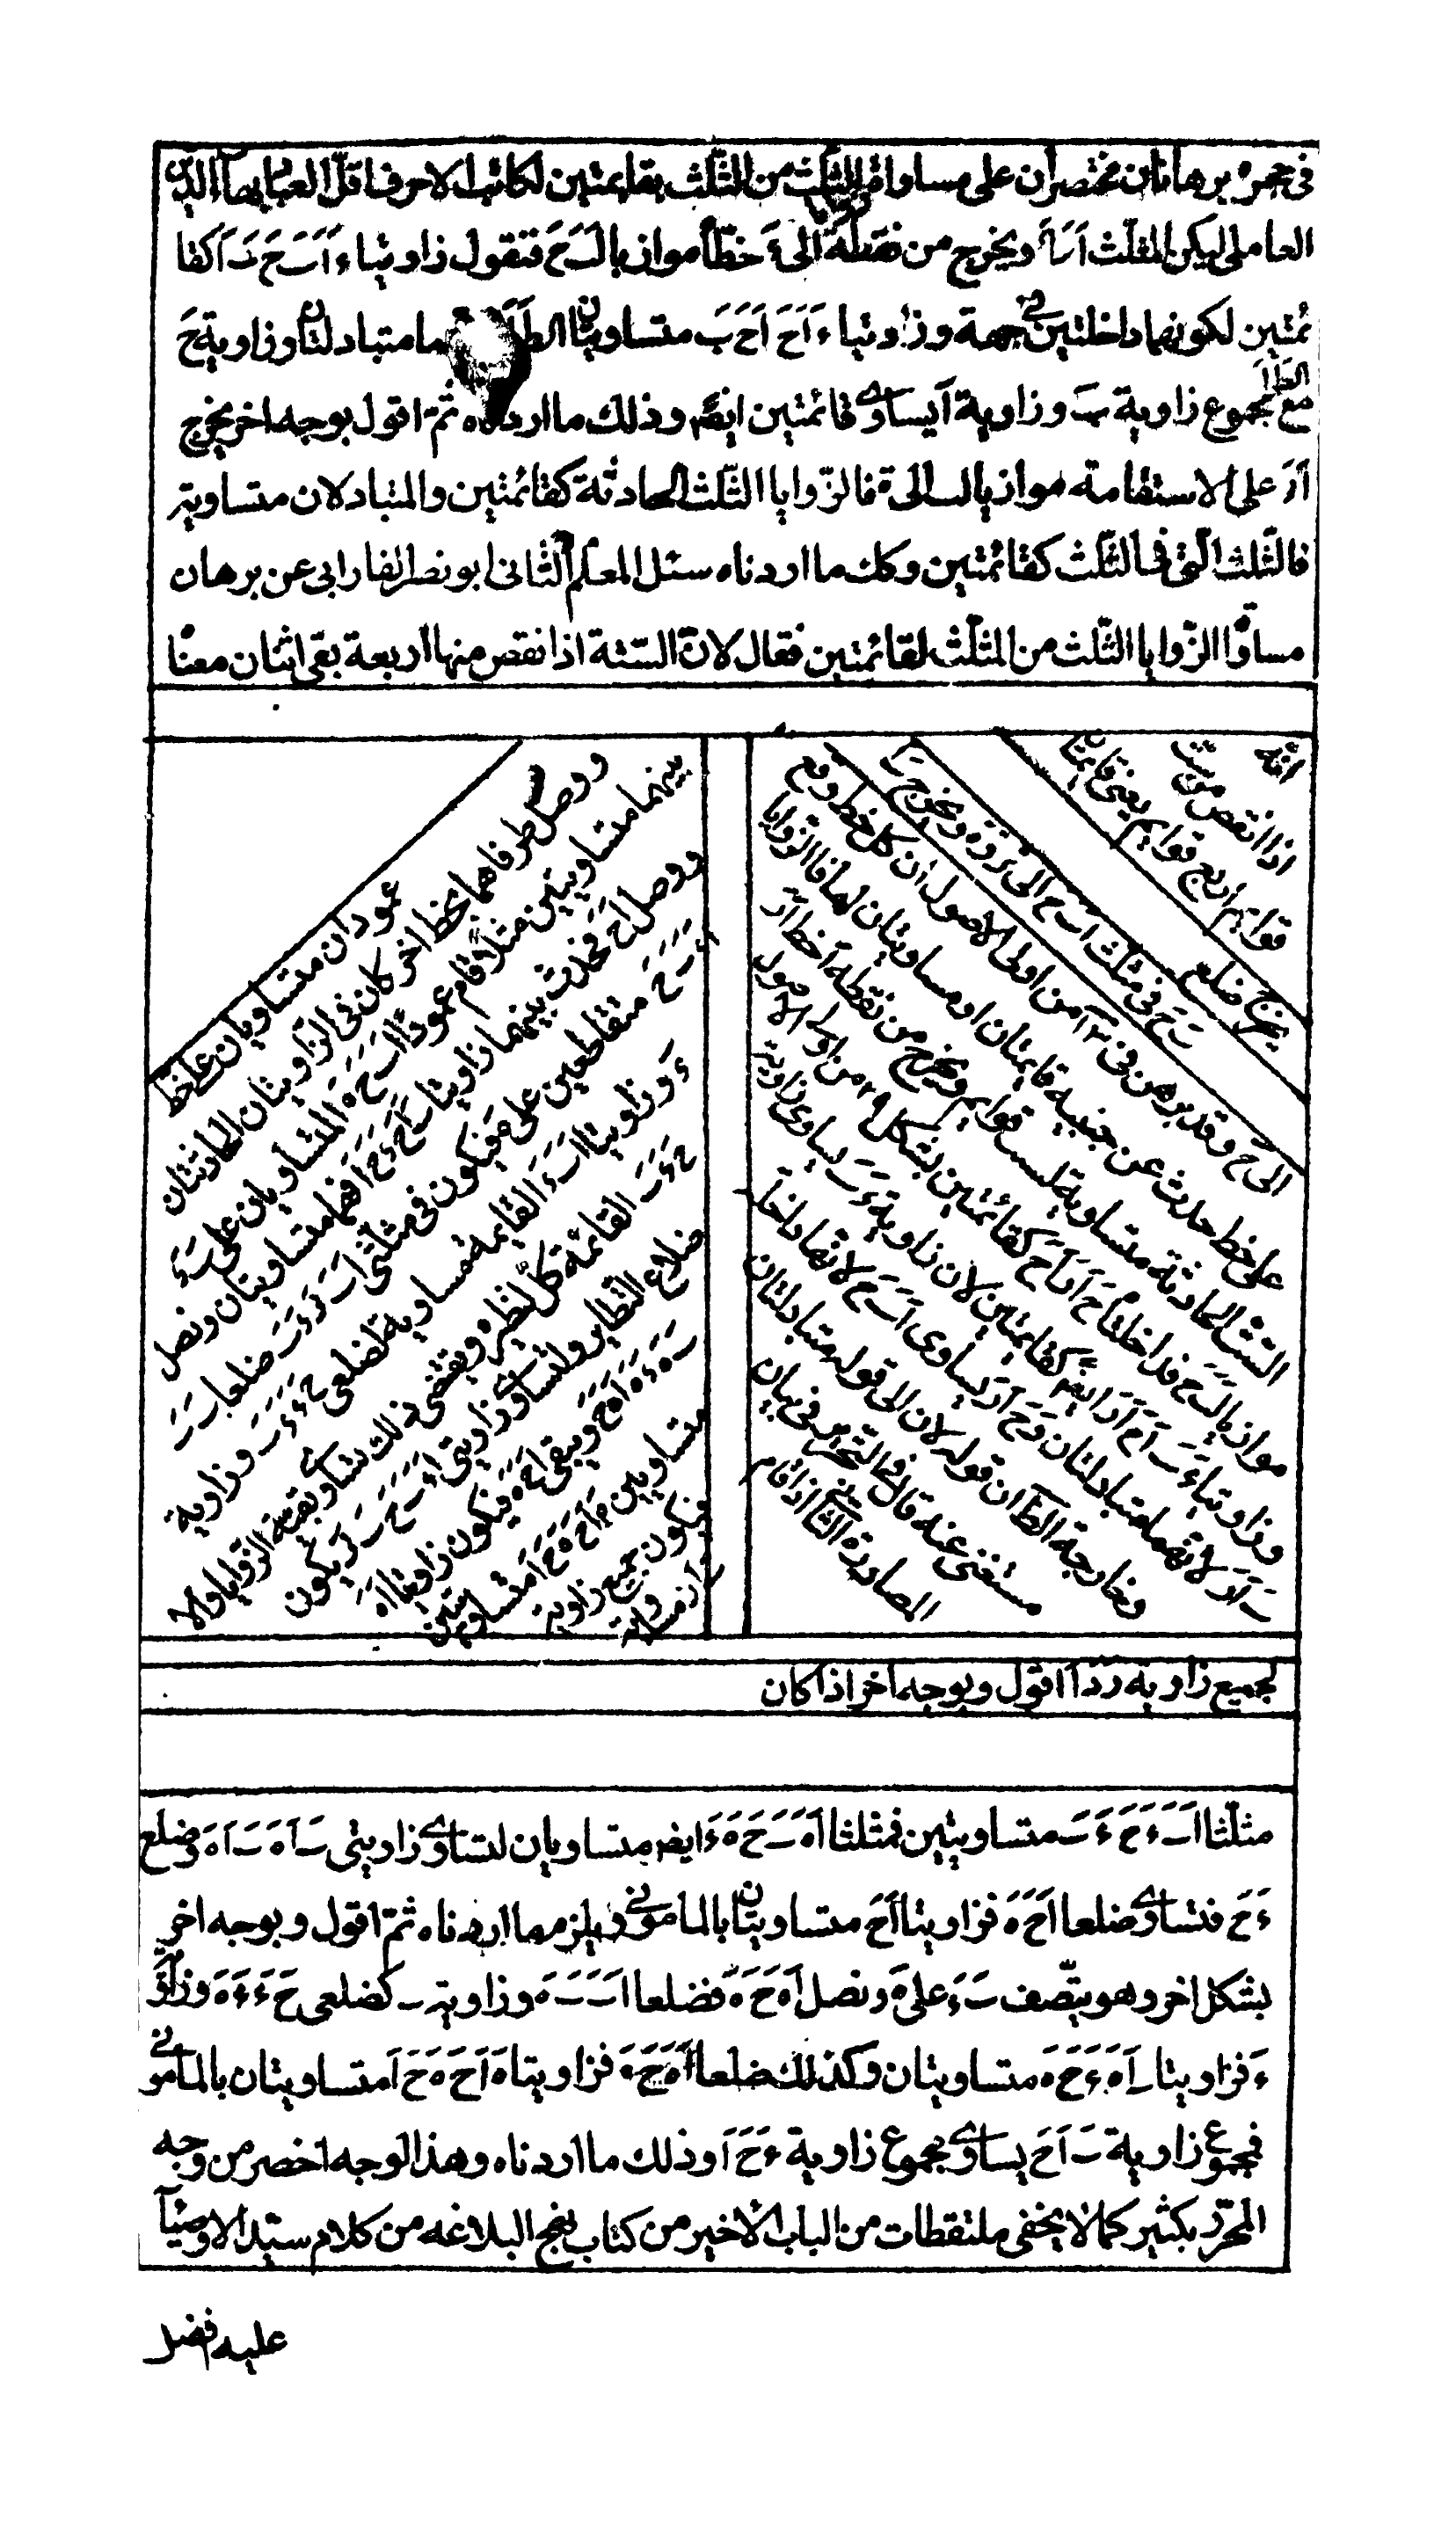 في حجره برهانان مختصران على مساواة المثلث من المثلث بقائمتين لكاتب الاحرف اقل العباد بهاء الدين
العاملى ليكن المثلث ا ب ح ويخرج من نقطة ا الى ء خطا موازيا ل ب ح فنقول زاويتا ء ا ب ح ب ا كقا
ئمتين لكونهما داخلتين في جهة وزاويتا ء ا ح ا ح ب متساويتان لانهما متبادلتان وزاوية ح
مع مجموع زاوية ب وزاوية ا يساوى قائمتين ايضا وذلك ما اردناه ثم اقول بوجه اخر يخرج
ا ء على الاستقامة موازيا ل ب ح الى ه فالزوايا الثلث الحادثة كقائمتين والمتبادلان متساوية
فالثلث التى فى المثلث كقائمتين وذلك ما اردناه سئل المعلم الثانى ابو نصر الفارابى عن برهان
مساواة الزوايا الثلث من المثلث لقائمتين فقال لان الستة اذا نقص منها اربعة بقى اثنان معنا
انه
اذا انقص من ست
قوايم اربع قوايم يعنى قايمتان
يخرج ضلع
ب ح فى مثلث ا ب ح الى ء و ه ويخرج ب
الى ح وقد برهن فى ١٣ من اولى الاصول ان كل خط وقع
على خط حدث عن جنبيه قايمتان او مساويتان لهما فالزوايا
الست الحادثة متساوية لست قوايم ويخرج من نقطة ا خط ا ء
موازيا ل ب ح فداخلتا ح ا ء ا ح كقائمتين بشكل ٢٩ من اولى الاصول
وزاويتا ء ب ا ح ا ء ايضا كقايمتين لان زاوية ء ب يساوى زاوية
ب ا ء لانهما متبادلتان و ح ا ء يساوى ا ب ح لانها داخلة
وخارجة الظ ان قوله لان الى قوله متبادلتان
مستغنى عنه قال فى التحرير فى بيان
المصادرة الثانى اذا قام
عمودان متساويان على خط
ووصل طرفاهما بخط اخر كان فى الزاويتان الحادثتان
بينهما متساويتين مثلا قام عمودا ا ب ح ء المتساويان على ب ء
ووصل ا ح فحدث بينهما زاويتا ب ا ح ء ح ا فهما متساويتان ونصل
ا ء ب ح متقاطعين على ه فيكون فى مثلثى ا ب ء ح ء ب ضلعا ا ب ب
ء وزاويتا ا ب ء القايمة مساوية لضلعى ح ء ء ب وزاوية
ح ء ب القائمة كل لنظيره ويقتضى ذلك تساوى بقية الزوايا والا
ضلاع النظاير ولتساوى زاويتى ا ء ب ح ب ء يكون
ب ه ء ه متساويين ويبقى ا ه ح ه فيكون زاويتا ا ه
متساويين ه ا ح ه ح ا متساويتين
فيكون جميع زاوية
ب ا ح مساوية
لجميع زاوية ء ح ا اقول وبوجه اخر اذا كان
مثلثا ا ب ء ح ء ب متساويتين فمثلثا ا ه ب ح ه ء ايضا متساويان لتساوى زاويتى ب ا ه ب ا ه وضلع
ء ح فتساوى ضلعا ا ح ه فزاويتا ا ح متساويتان بالمامونى ويلزم ما اردناه ثم اقول وبوجه اخر
بشكل اخر وهو ينصف ب ء على ه ونصل ا ه ح ه فضلعا ا ب ب ه وزاوية ب كضلعى ح ء ء ه وزاوية
ء فزاويتا ب ا ه ء ح ه متساويتان وكذلك ضلعا ا ه ح ه فزاويتا ه ا ح ه ح ا متساويتان بالمامونى
فمجموع زاوية ب ا ح يساوى مجموع زاوية ء ح ا وذلك ما اردناه وهذا الوجه اخصر من وجه
المحرر بكثير كما لا يخفى ملتقطات من الباب الاخير من كتاب نهج البلاغه من كلام سيد الاوصيآ
عليه افضل